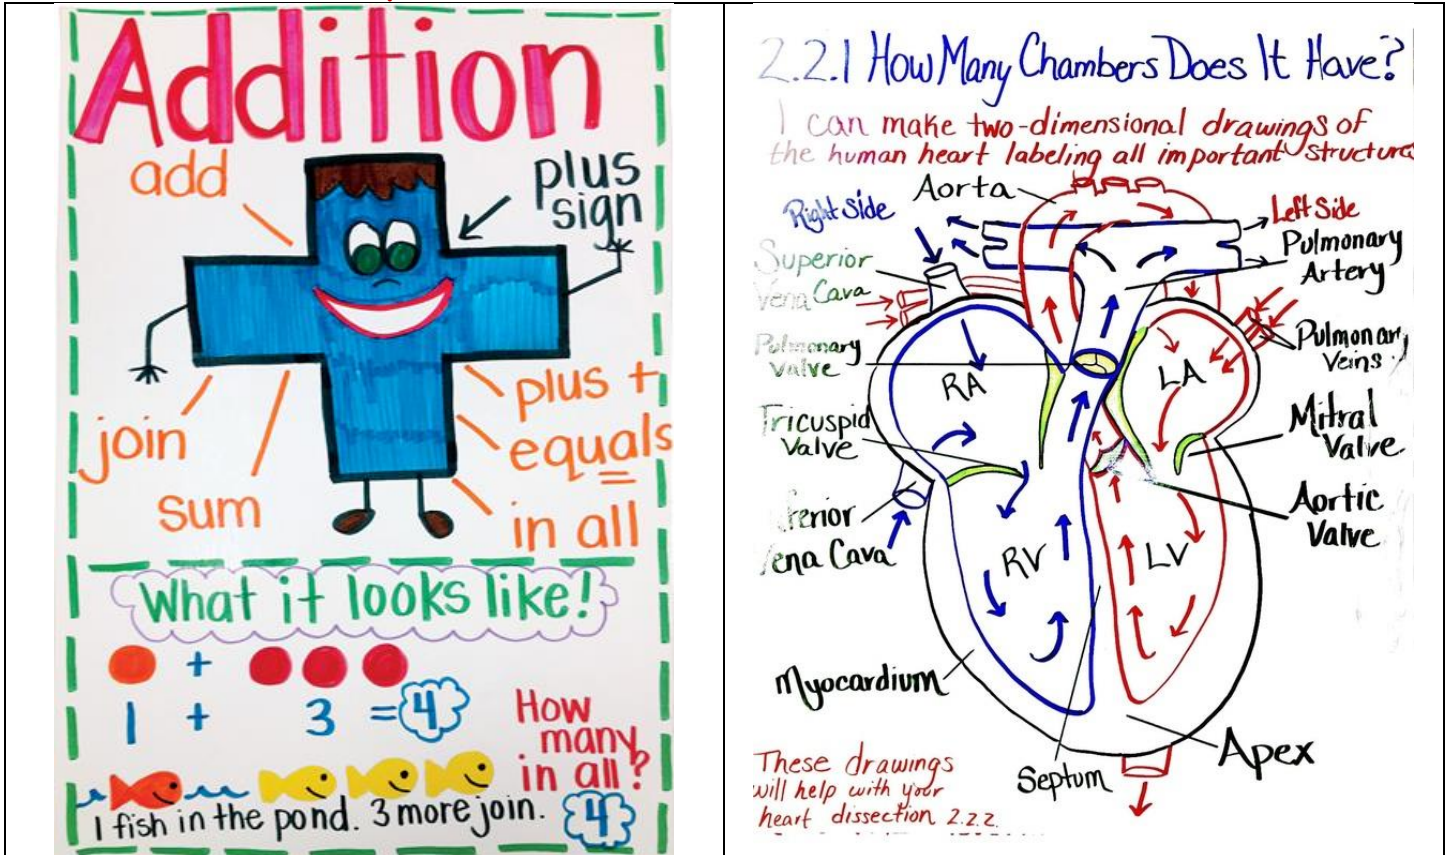 Addition
add
plus
sign
join
sum
plus +
equals
=
in all
What it looks like!
+
1 + 3 = 4
How
many
in all?
1 fish in the pond. 3 more join.
4
2.2.1 How Many Chambers Does It Have?
I can make two-dimensional drawings of
the human heart labeling all important structures
Aorta
Right Side
Left Side
Pulmonary
Artery
Superior
Vena Cava
Pulmonary
Valve
Pulmonary
Veins
RA
LA
Tricuspid
Valve
Mitral
Valve
ferior
ena Cava
Aortic
Valve
RV
LV
Myocardium
Apex
Septum
These drawings
will help with your
heart dissection 2.2.2.